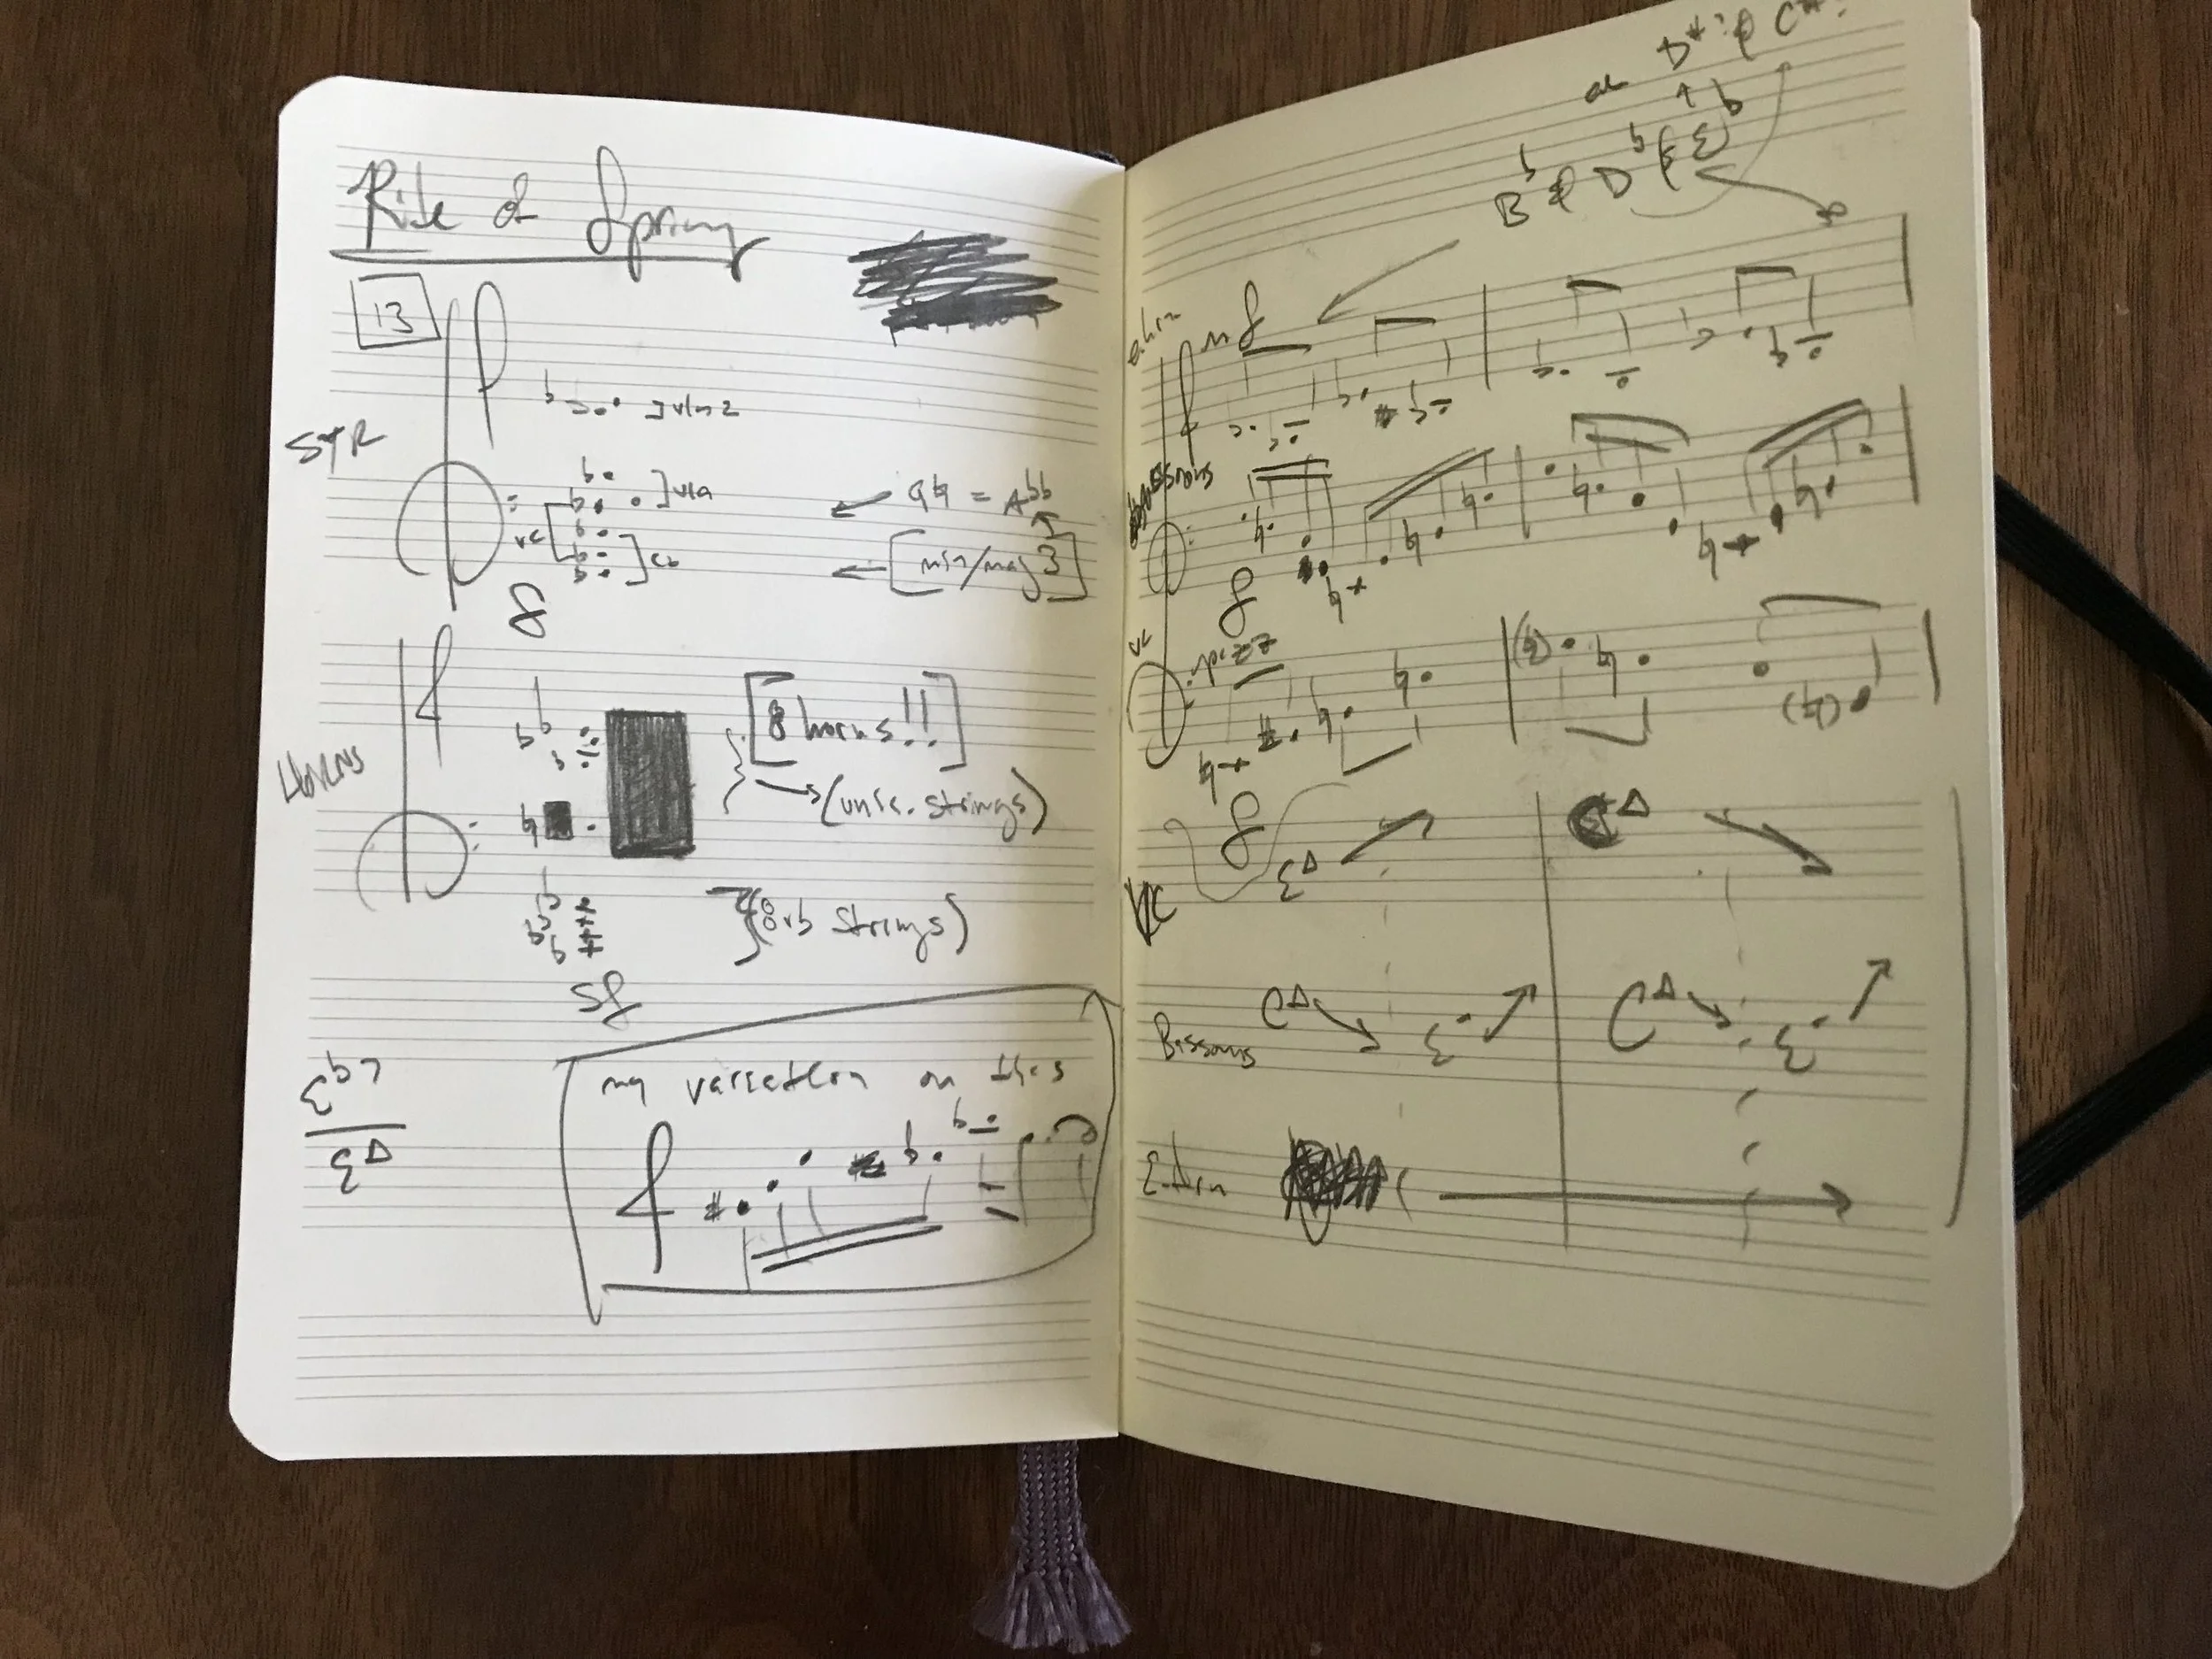 Rite of Spring
13
vln 2
STR
vla
G♮ = A♭♭
vc
cb
[min/maj 3]
f
[8 horns!!]
HORNS
(unis. strings)
(8vb strings)
sf
E♭7
E△
my variation on this
D# & C#
B♭ & D♭ & E♭
e.hrn
mf
bassoons
f
vc
pizz
f
E△
C△
VC
Bassoons
C△
E-
C△
E-
E.hrn